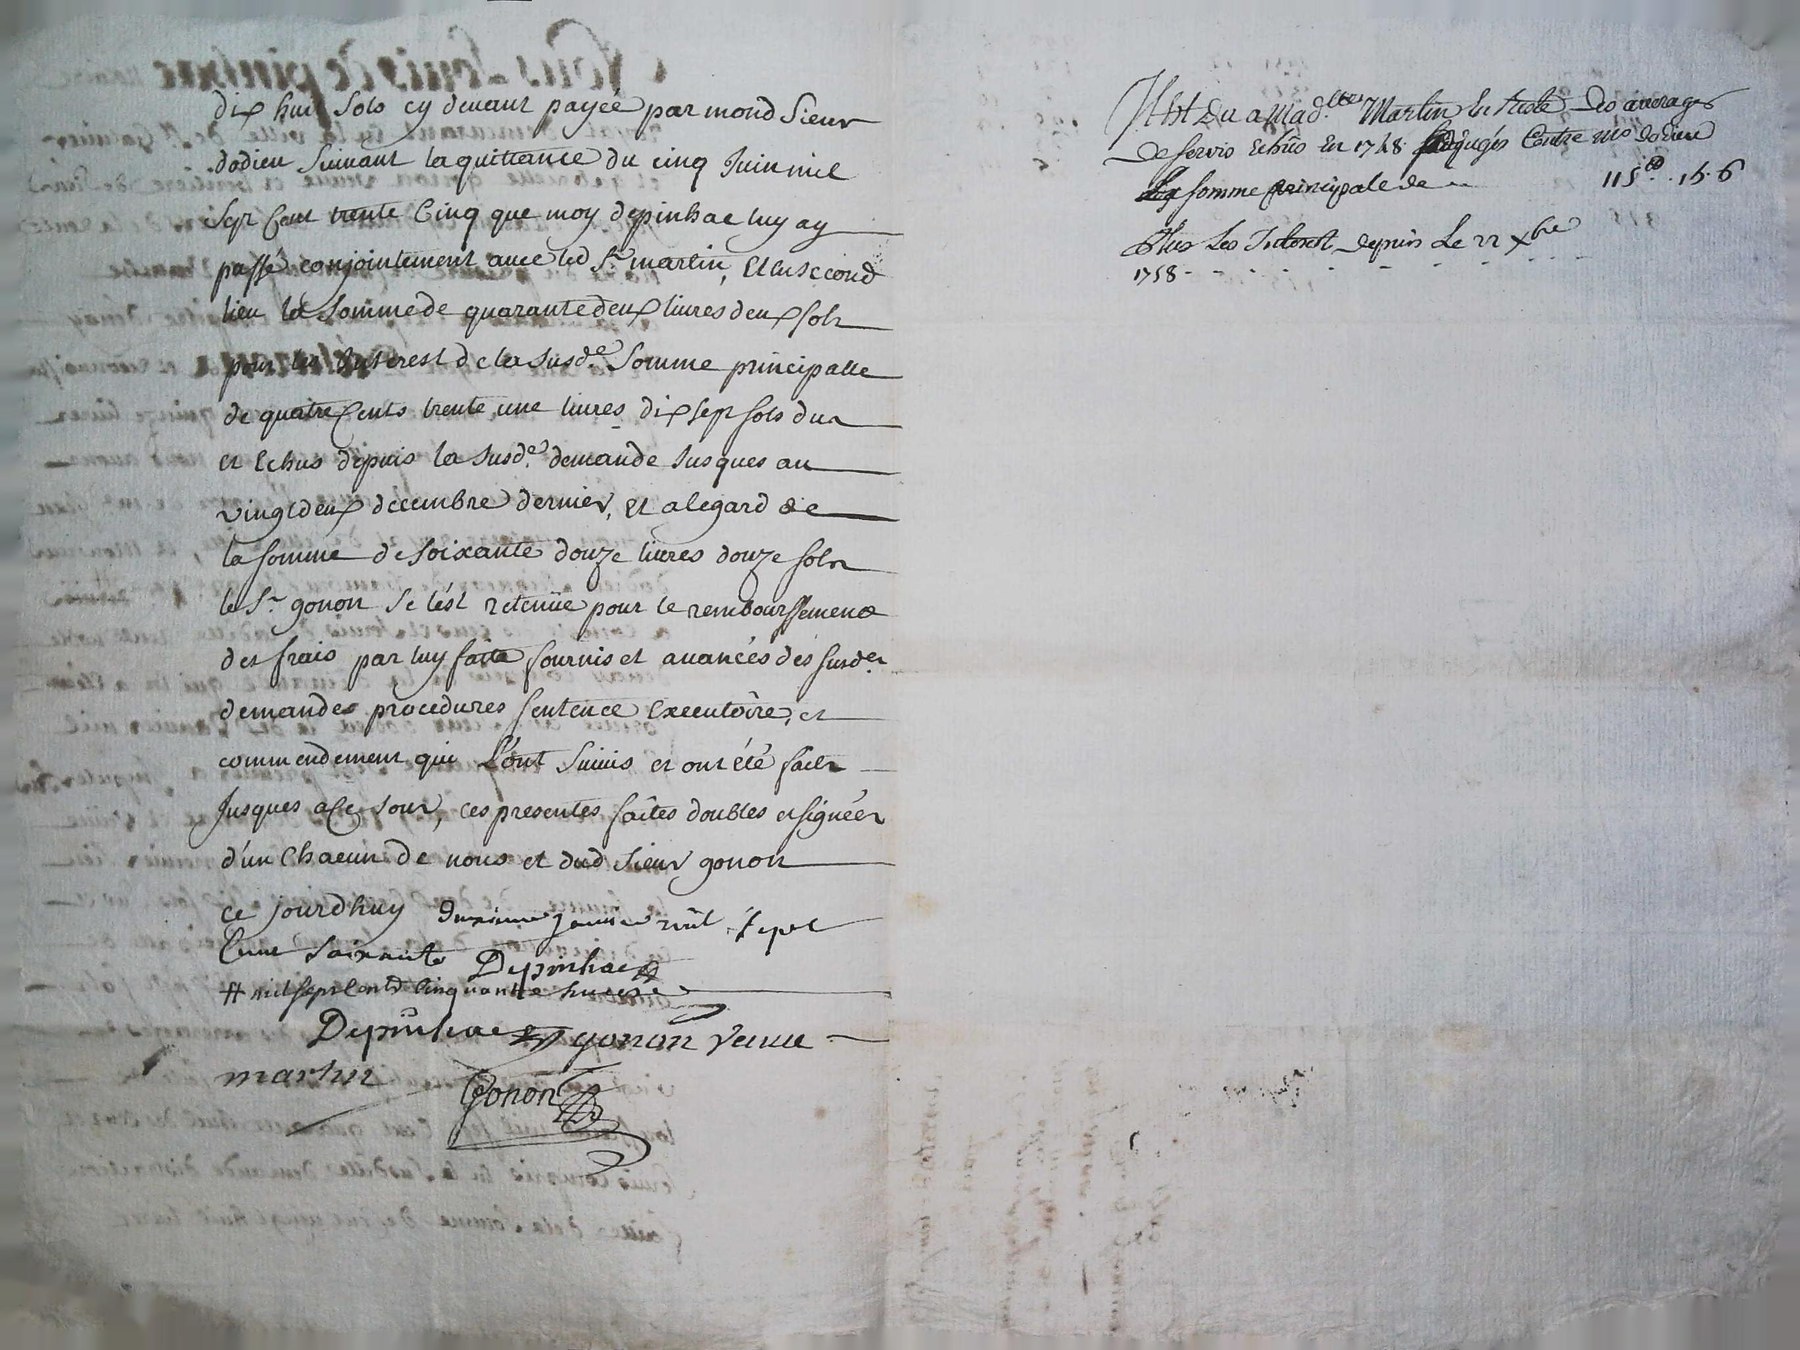 dix huit sols cy devant payée par mond Sieur
dodieu suivant la quittance du cinq Juin mil
sept Cent trente Cinq que moy depinhac luy ay
passé conjointement avec led Sr martin, Et en second
lieu la somme de quarante deux livres deux sols
pour les Interest de la susde somme principalle
de quatre Cents trente une livres dix sept sols dus
et Echus depuis la susde demande Jusques au
vingt deux decembre dernier, et a legard de
la somme de soixante douze livres douze sols
le Sr gonon se l'est retenüe pour le remboursement
des frais par luy faits fournis et avancés des susdes
demandes procedures sentence Executoire, et
commendement qui L'ont suivis et ont été faits
Jusques a Ce Jour, ces presentes faites doubles et signées
d'un Chacun de nous et dud sieur gonon
ce jourdhuy deuxieme janvier mil sept
Cent soixante Depinhac
# mil sept Cents Cinquante huit
Depinhac gonon veuve
martin
Gonon
Il est Du a Madlle Martin En reste des arerages
de servis Echûs En 1748 adjugés Contre Mr dodieu
La somme principale de 115 . 15 . 6
Plus Les Interest depuis Le 22 Xbre
1758